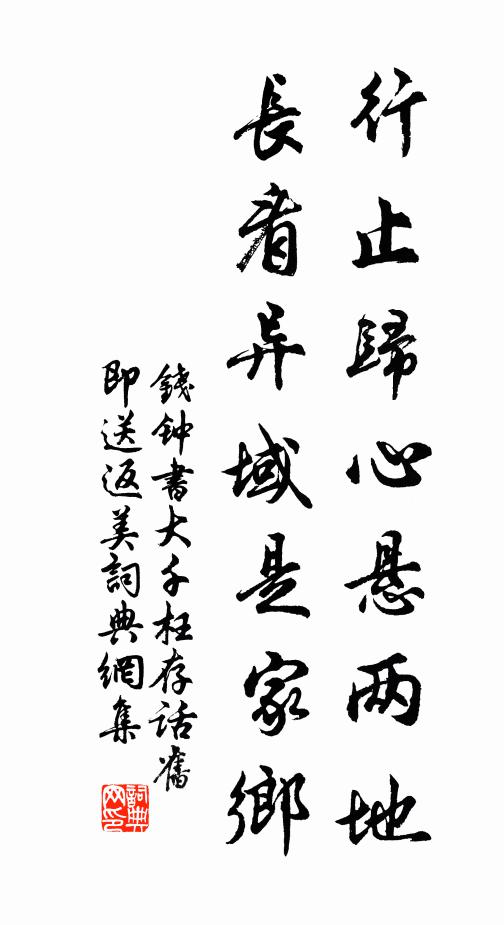 行止歸心悬两地
長者异域是家鄉
錢钟書大千枉存話舊
即送返美詞典網集
詞典网印